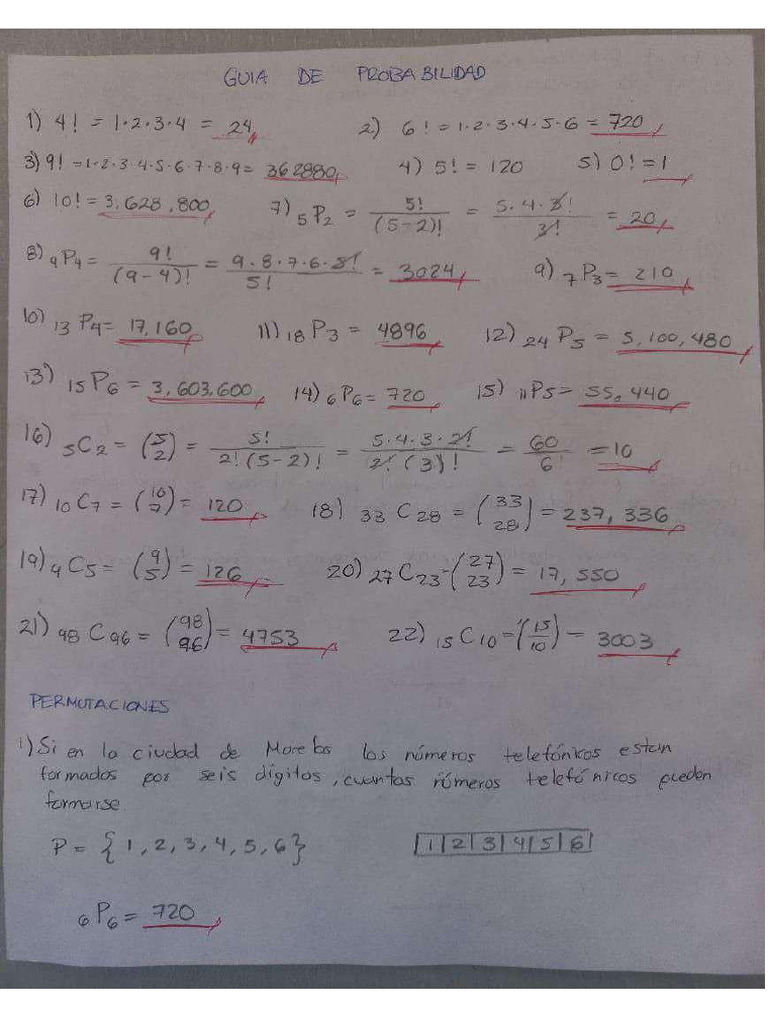 GUIA DE PROBABILIDAD
1) 4! = 1·2·3·4 = 24 2) 6! = 1·2·3·4·5·6 = 720
3) 9! = 1·2·3·4·5·6·7·8·9 = 362880 4) 5! = 120 5) 0! = 1
6) 10! = 3,628,800 7) 5P2 = 5!/(5-2)! = 5·4·3!/3! = 20
8) 9P4 = 9!/(9-4)! = 9·8·7·6·5!/5! = 3024 9) 7P3 = 210
10) 13P4 = 17,160 11) 18P3 = 4896 12) 24P5 = 5,100,480
13) 15P6 = 3,603,600 14) 6P6 = 720 15) 11P5 = 55,440
16) 5C2 = (5 2) = 5!/2!(5-2)! = 5·4·3·2!/2!(3)! = 60/6 = 10
17) 10C7 = (10 7) = 120 18) 33C28 = (33 28) = 237,336
19) 9C5 = (9 5) = 126 20) 27C23 = (27 23) = 17,550
21) 98C96 = (98 96) = 4753 22) 15C10 = (15/10) = 3003
PERMUTACIONES
1) Si en la ciudad de Morelos los números telefónicos estan
formados por seis digitos, cuantos números telefónicos pueden
formarse
P = {1, 2, 3, 4, 5, 6} |1|2|3|4|5|6|
6P6 = 720